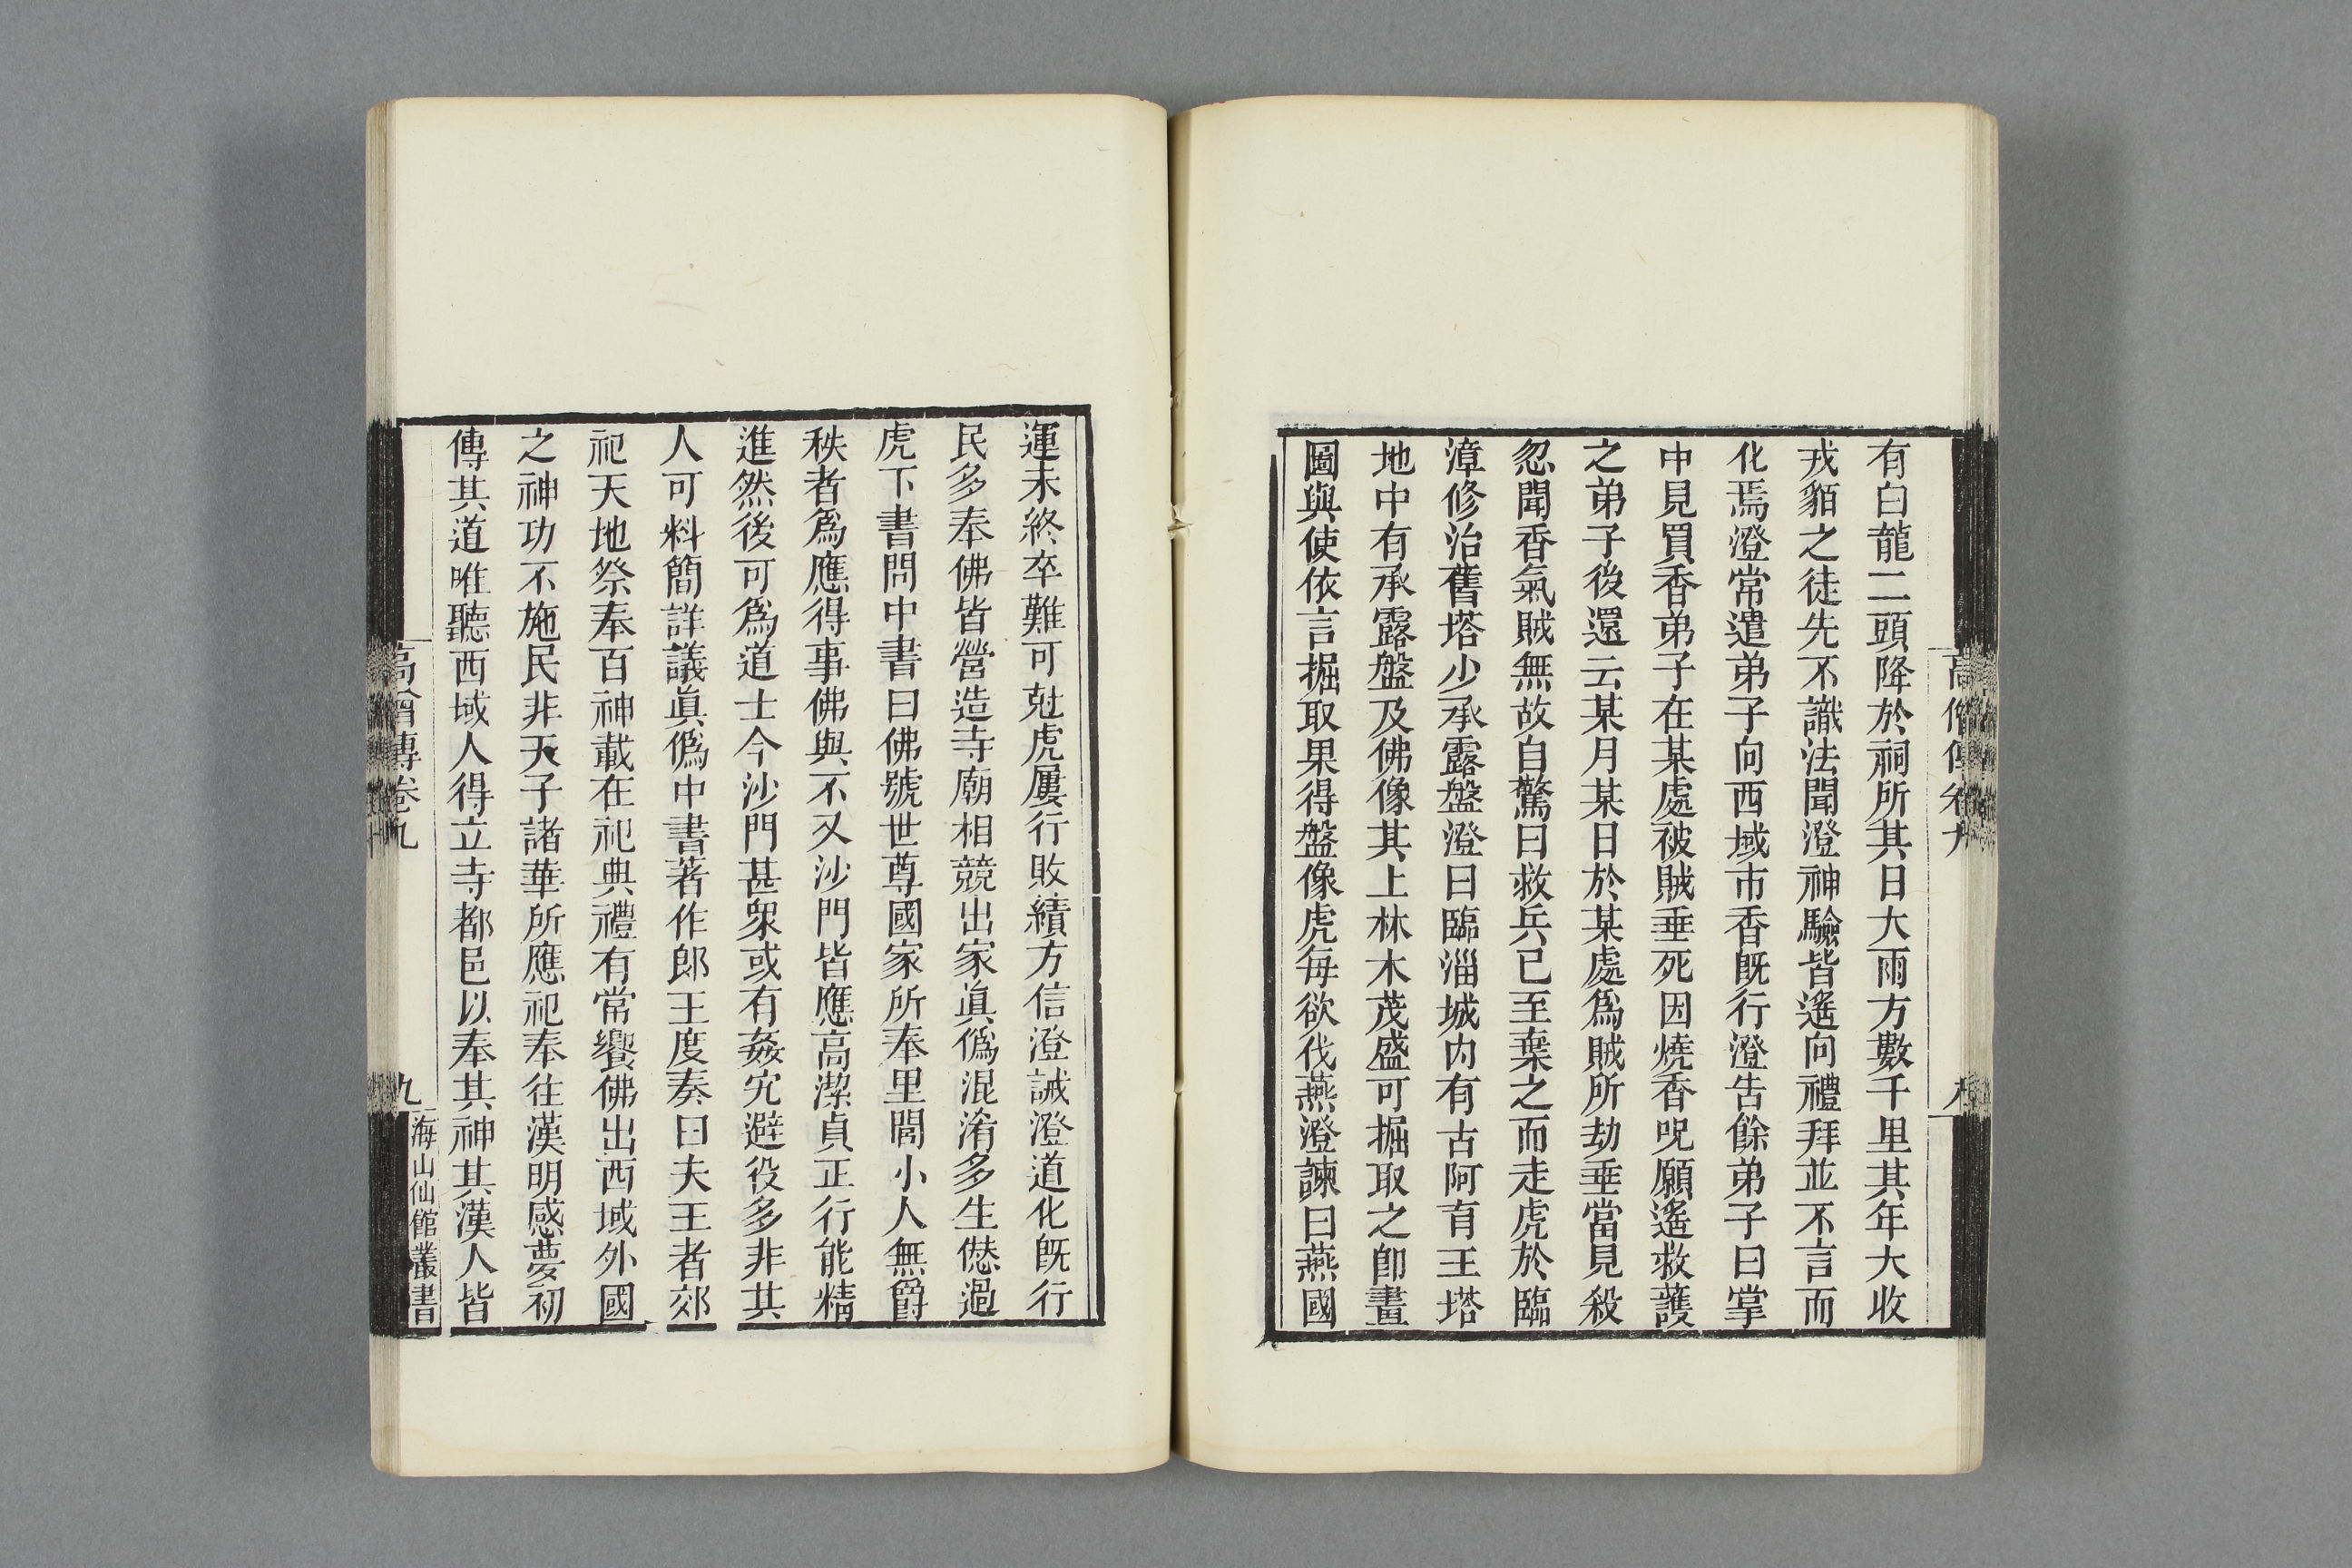 高僧傳卷九
有白龍二頭降於祠所其日大雨方數千里其年大收
戎貊之徒先不識法聞澄神驗皆遙向禮拜並不言而
化焉澄常遣弟子向西域市香既行澄告餘弟子曰掌
中見買香弟子在某處被賊垂死因燒香呪願遙救護
之弟子後還云某月某日於某處爲賊所劫垂當見殺
忽聞香氣賊無故自驚曰救兵已至棄之而走虎於臨
漳修治舊塔少承露盤澄曰臨淄城内有古阿育王塔
地中有承露盤及佛像其上林木茂盛可掘取之卽畫
圖與使依言掘取果得盤像虎每欲伐燕澄諫曰燕國
運未終卒難可尅虎屢行敗績方信澄誡澄道化既行
民多奉佛皆營造寺廟相競出家眞僞混淆多生愆過
虎下書問中書曰佛號世尊國家所奉里閭小人無爵
秩者爲應得事佛與不又沙門皆應高潔貞正行能精
進然後可爲道士今沙門甚衆或有姦宄避役多非其
人可料簡詳議眞僞中書著作郎王度奏曰夫王者郊
祀天地祭奉百神載在祀典禮有常饗佛出西域外國
之神功不施民非天子諸華所應祀奉往漢明感夢初
傳其道唯聽西域人得立寺都邑以奉其神其漢人皆
高僧傳卷九
九
海山仙館叢書